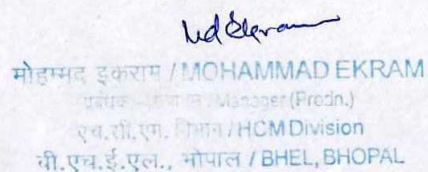 Md Ekram
मोहम्मद इकराम / MOHAMMAD EKRAM
/ Manager (Prodn.)
एच.सी.एम. विभाग / HCM Division
बी.एच.ई.एल., भोपाल / BHEL, BHOPAL